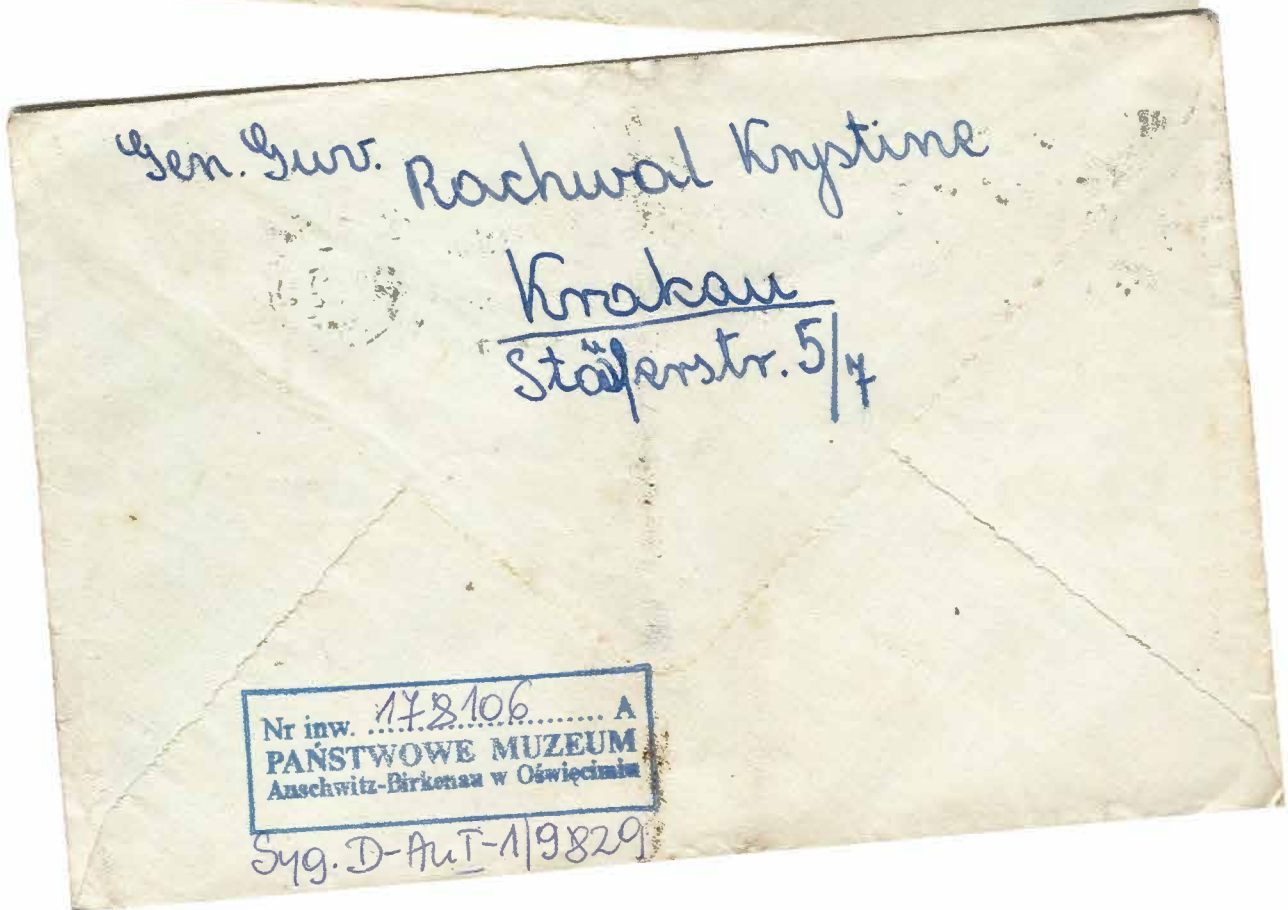 Gen. Guv. Rachwal Krystine
Krakau
5/7
Nr inw. 178106 A
PAŃSTWOWE MUZEUM
Auschwitz-Birkenau w Oświęcimiu
Syg. D-AuI-1/9829